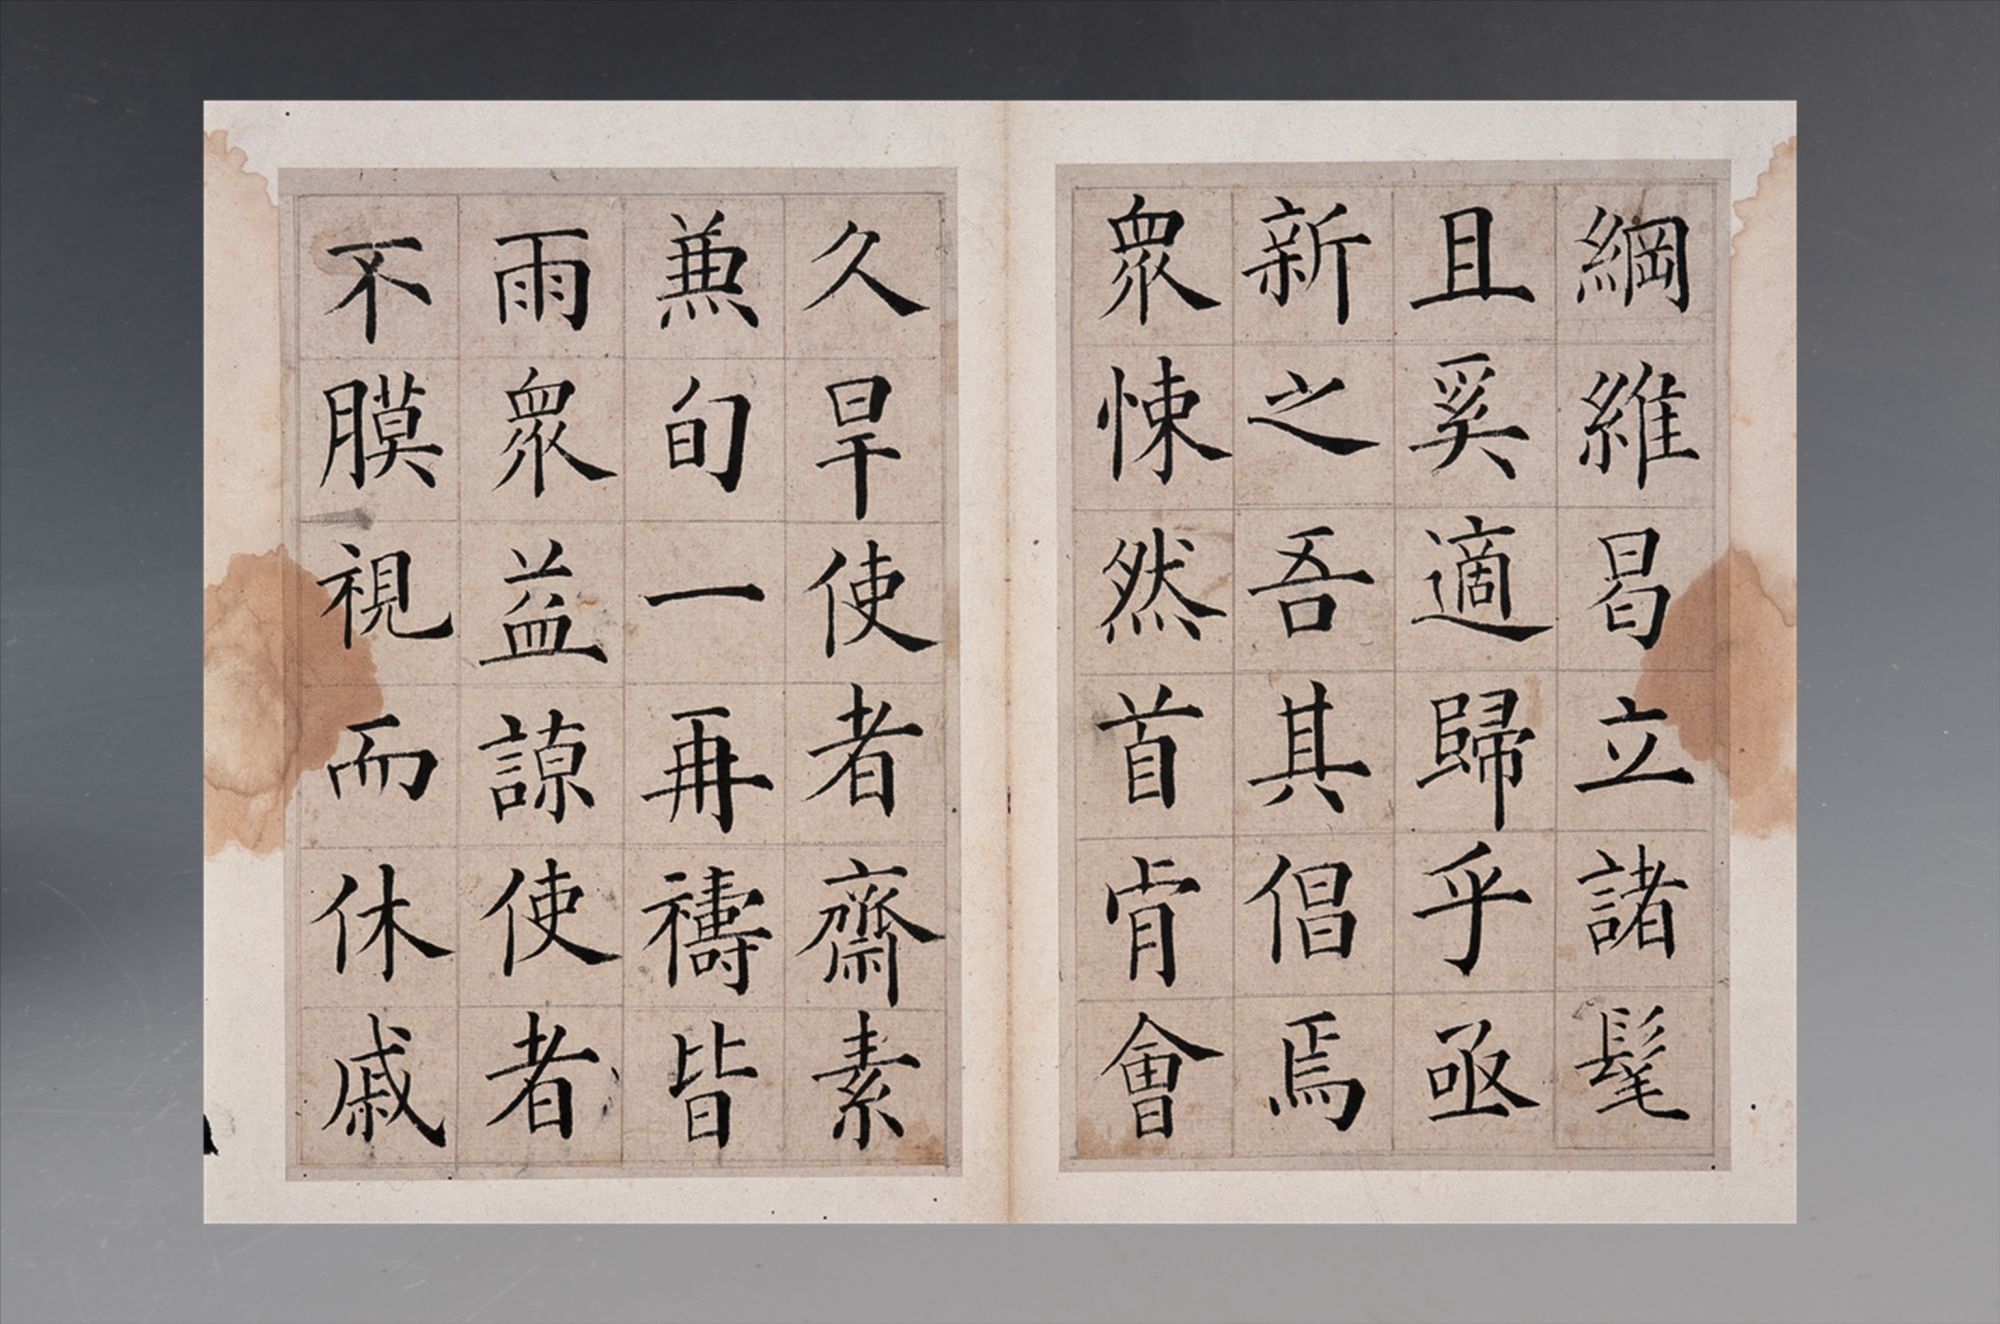 綱維曷立諸髦
且奚適歸乎亟
新之吾其倡焉
衆悚然首肯會
久旱使者齋素
兼旬一再禱皆
雨衆益諒使者
不膜視而休戚